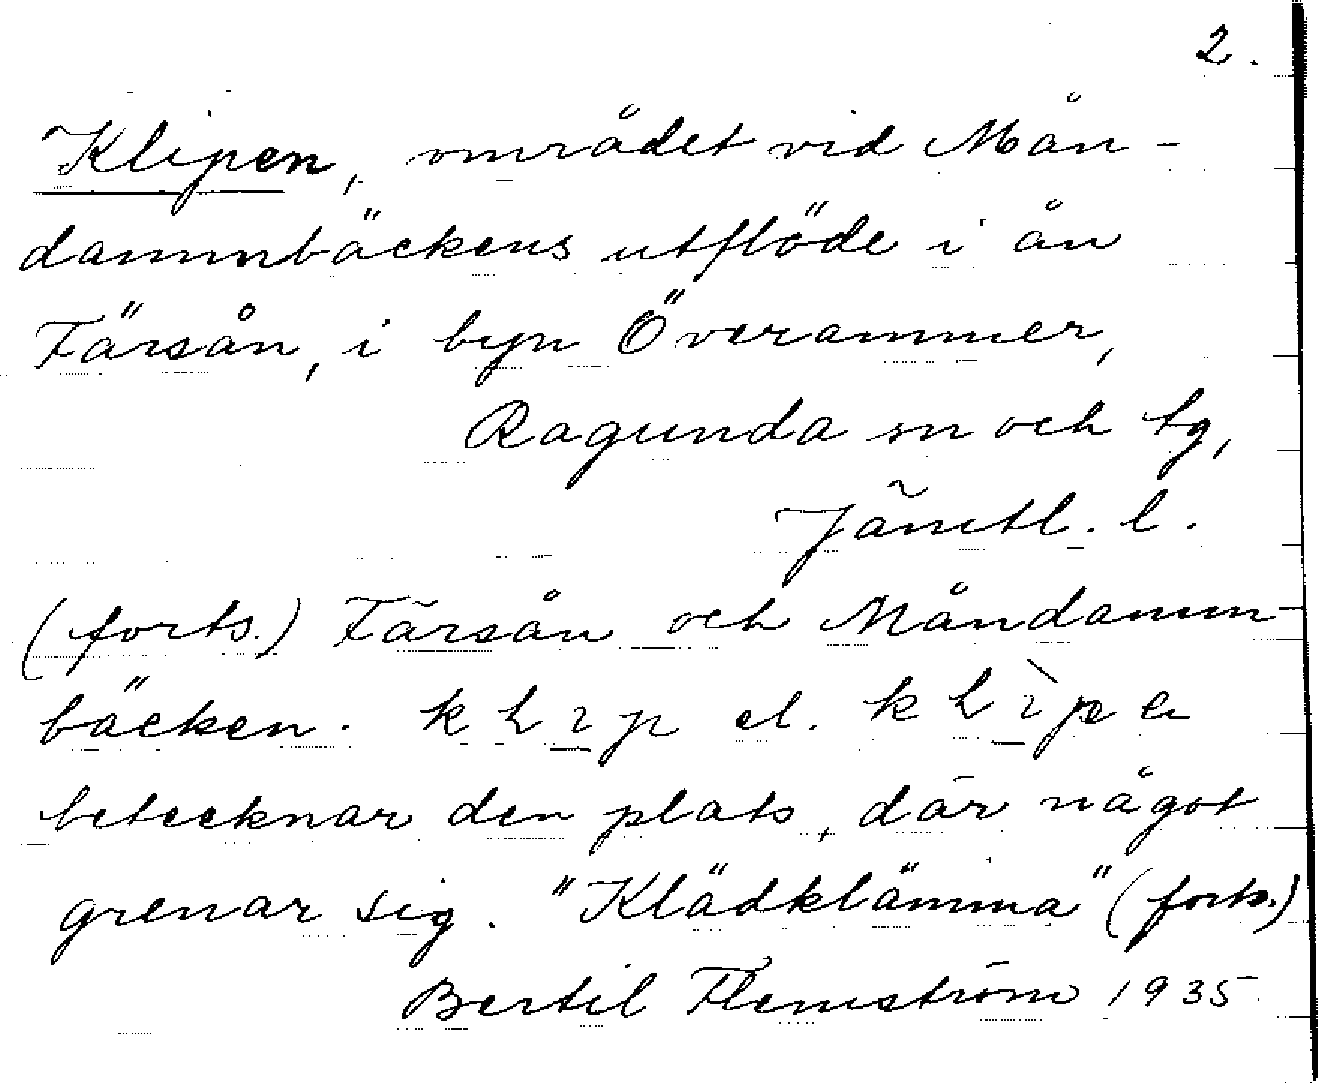 2.
Klipen, området vid Mån-
dammbäckens utflöde i ån
Färsån, i byn Överammer,
Ragunda sn och tg,
Jämtl. l.
(forts.) Färsån och Måndamm
bäcken. el.
betecknar den plats, där något
grenar sig. "Klädklämma" (forts.)
Bertil Flemström 1935